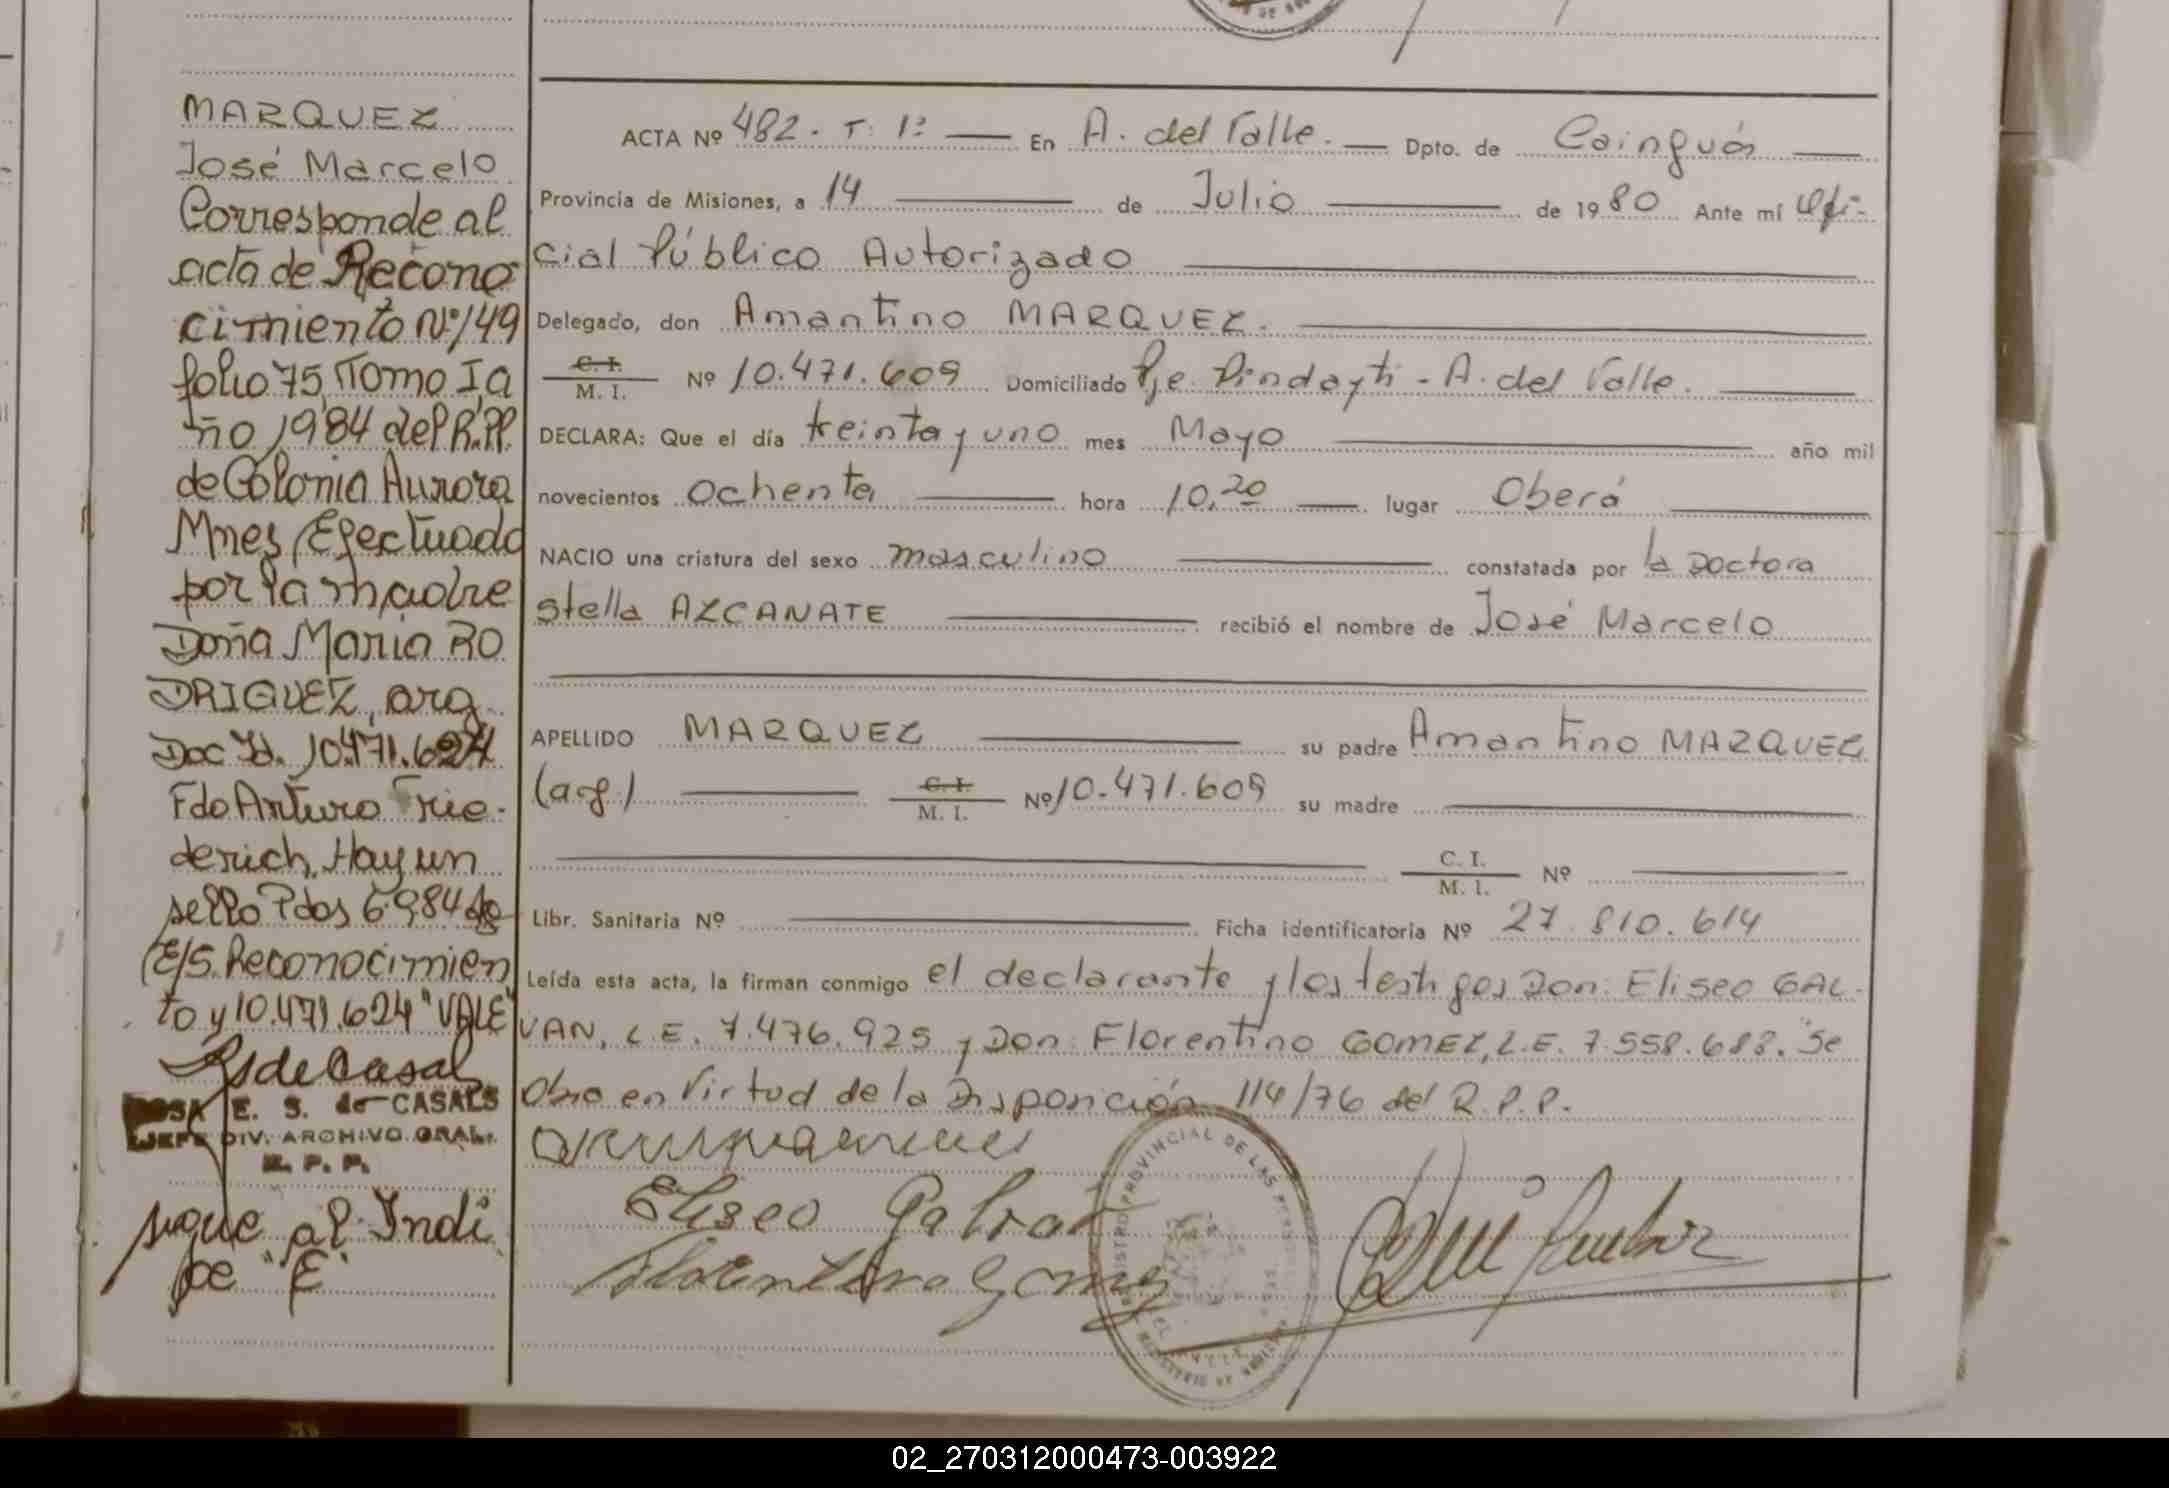 MARQUEZ
José Marcelo
Corresponde al
acta de Recono
cimiento Nº 149
folio 75, Tomo I, a
ño 1984 del R.PP.
de Colonia Aurora
Mnes, Efectuado
por la madre
Doña Maria RO
DRIGUEZ, arg.
Doc Id. 10.471.624
Fdo Arturo Frie-
derich, Hay un
sello Pdas 6.9.84
E/S. Reconocimien
to y 10.471.624 "VALE"
ROSA E. S. de CASALS
JEFE DIV. ARCHIVO GRAL.
R. P. P.
sigue al Indi
ce "E"
ACTA Nº 482. T: 1º En A. del Valle. Dpto. de Cainguás
Provincia de Misiones, a 14 de Julio de 1980 Ante mí Ofi-
cial Público Autorizado
Delegado, don Amantino MARQUEZ.
C. I.
M. I. Nº 10.471.609 Domiciliado Pje. Pindayti - A. del Valle.
DECLARA: Que el día treinta y uno mes Mayo año mil
novecientos Ochenta hora 10,20 lugar Oberá
NACIO una criatura del sexo masculino constatada por la Doctora
Stella AZCANATE recibió el nombre de José Marcelo
APELLIDO MARQUEZ su padre Amantino MARQUEZ
(arg.) C. I.
M. I. Nº 10.471.609 su madre
C. I.
M. I. Nº
Libr. Sanitaria Nº Ficha identificatoria Nº 27.810.614
Leída esta acta, la firman conmigo el declarante y los testigos Don: Eliseo GAL-
VAN, L.E. 7.476.925 y Don: Florentino GOMEZ, L.E. 7.558.688. "Se
Obro en Virtud de la Disposición 114/76 del R.P.P.
Eliseo Galvan
Florentino Gomez
REGISTRO PROVINCIAL DE LAS
02_270312000473-003922